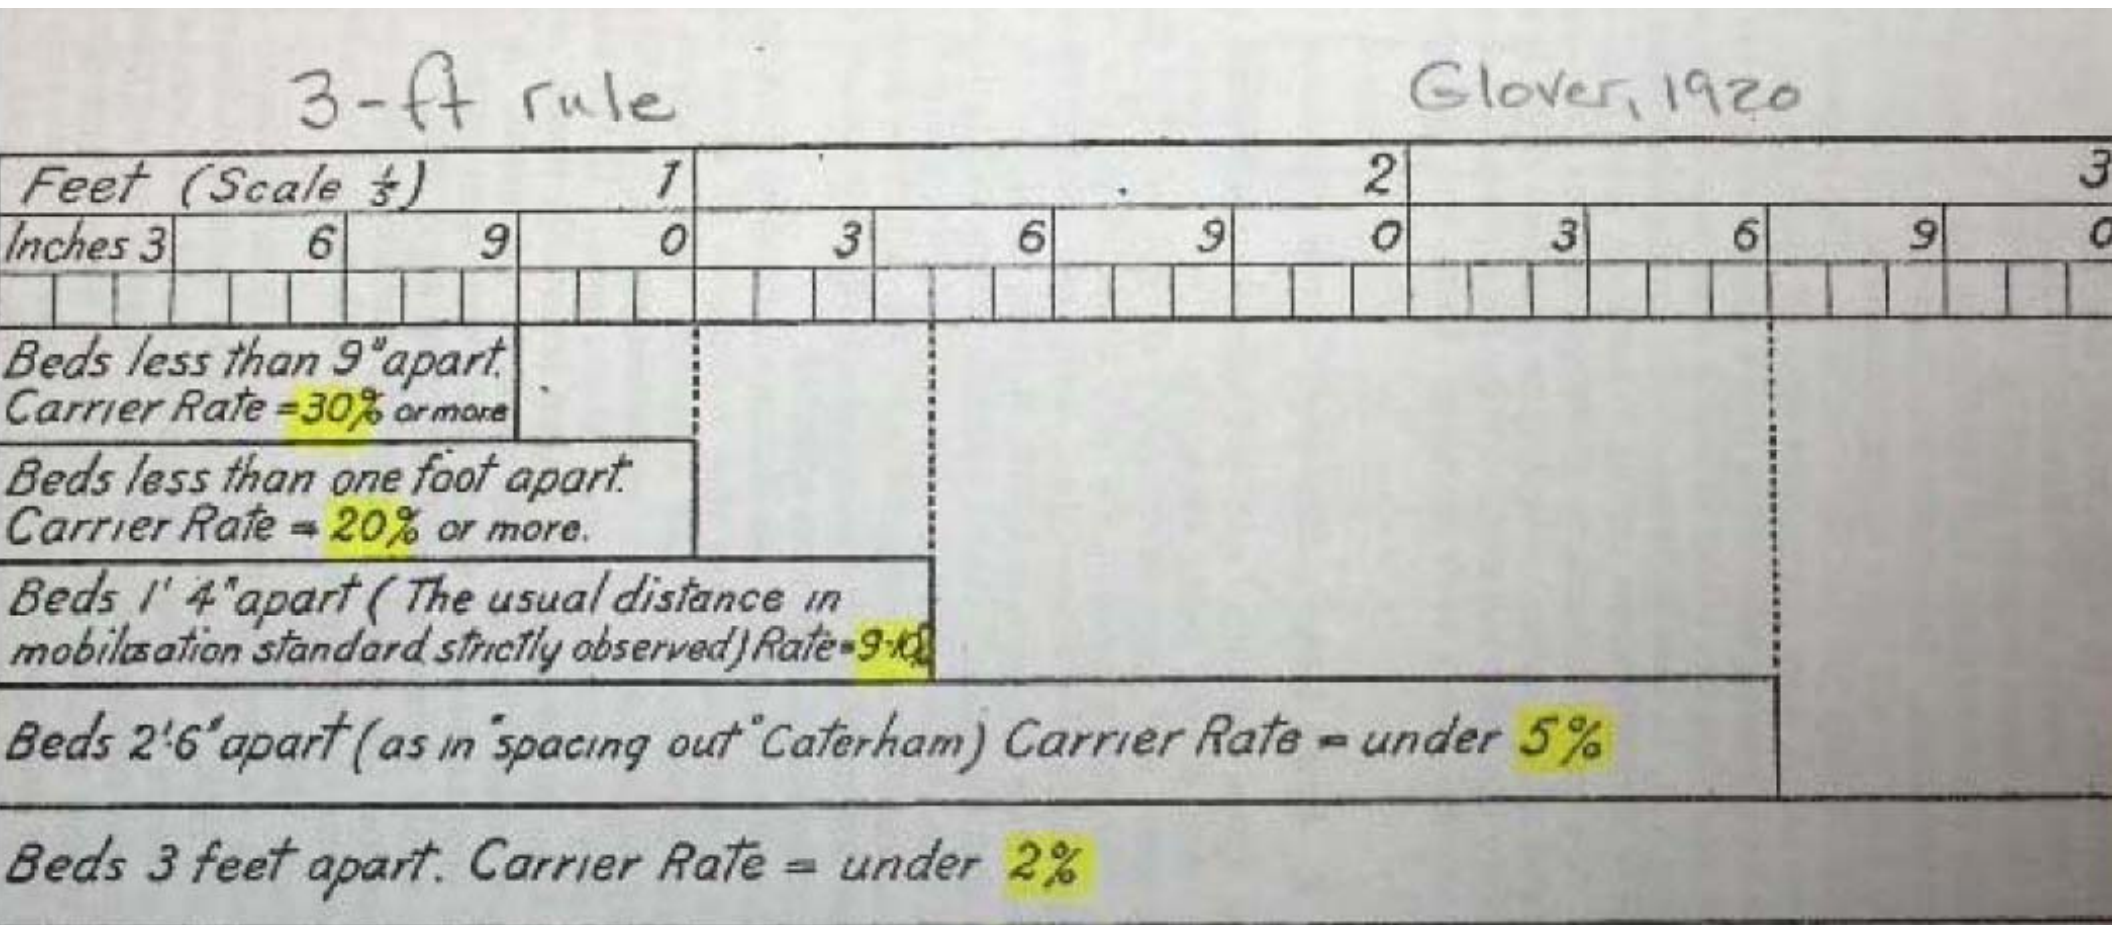 3-ft rule
Glover, 1920
Feet (Scale ⅕) 1 2 3
Inches 3 6 9 0 3 6 9 0 3 6 9 0
Beds less than 9" apart.
Carrier Rate = 30% or more
Beds less than one foot apart.
Carrier Rate = 20% or more.
Beds 1' 4" apart (The usual distance in
mobilisation standard strictly observed) Rate = 9-10%
Beds 2'.6" apart (as in "spacing out" Caterham) Carrier Rate = under 5%
Beds 3 feet apart. Carrier Rate = under 2%